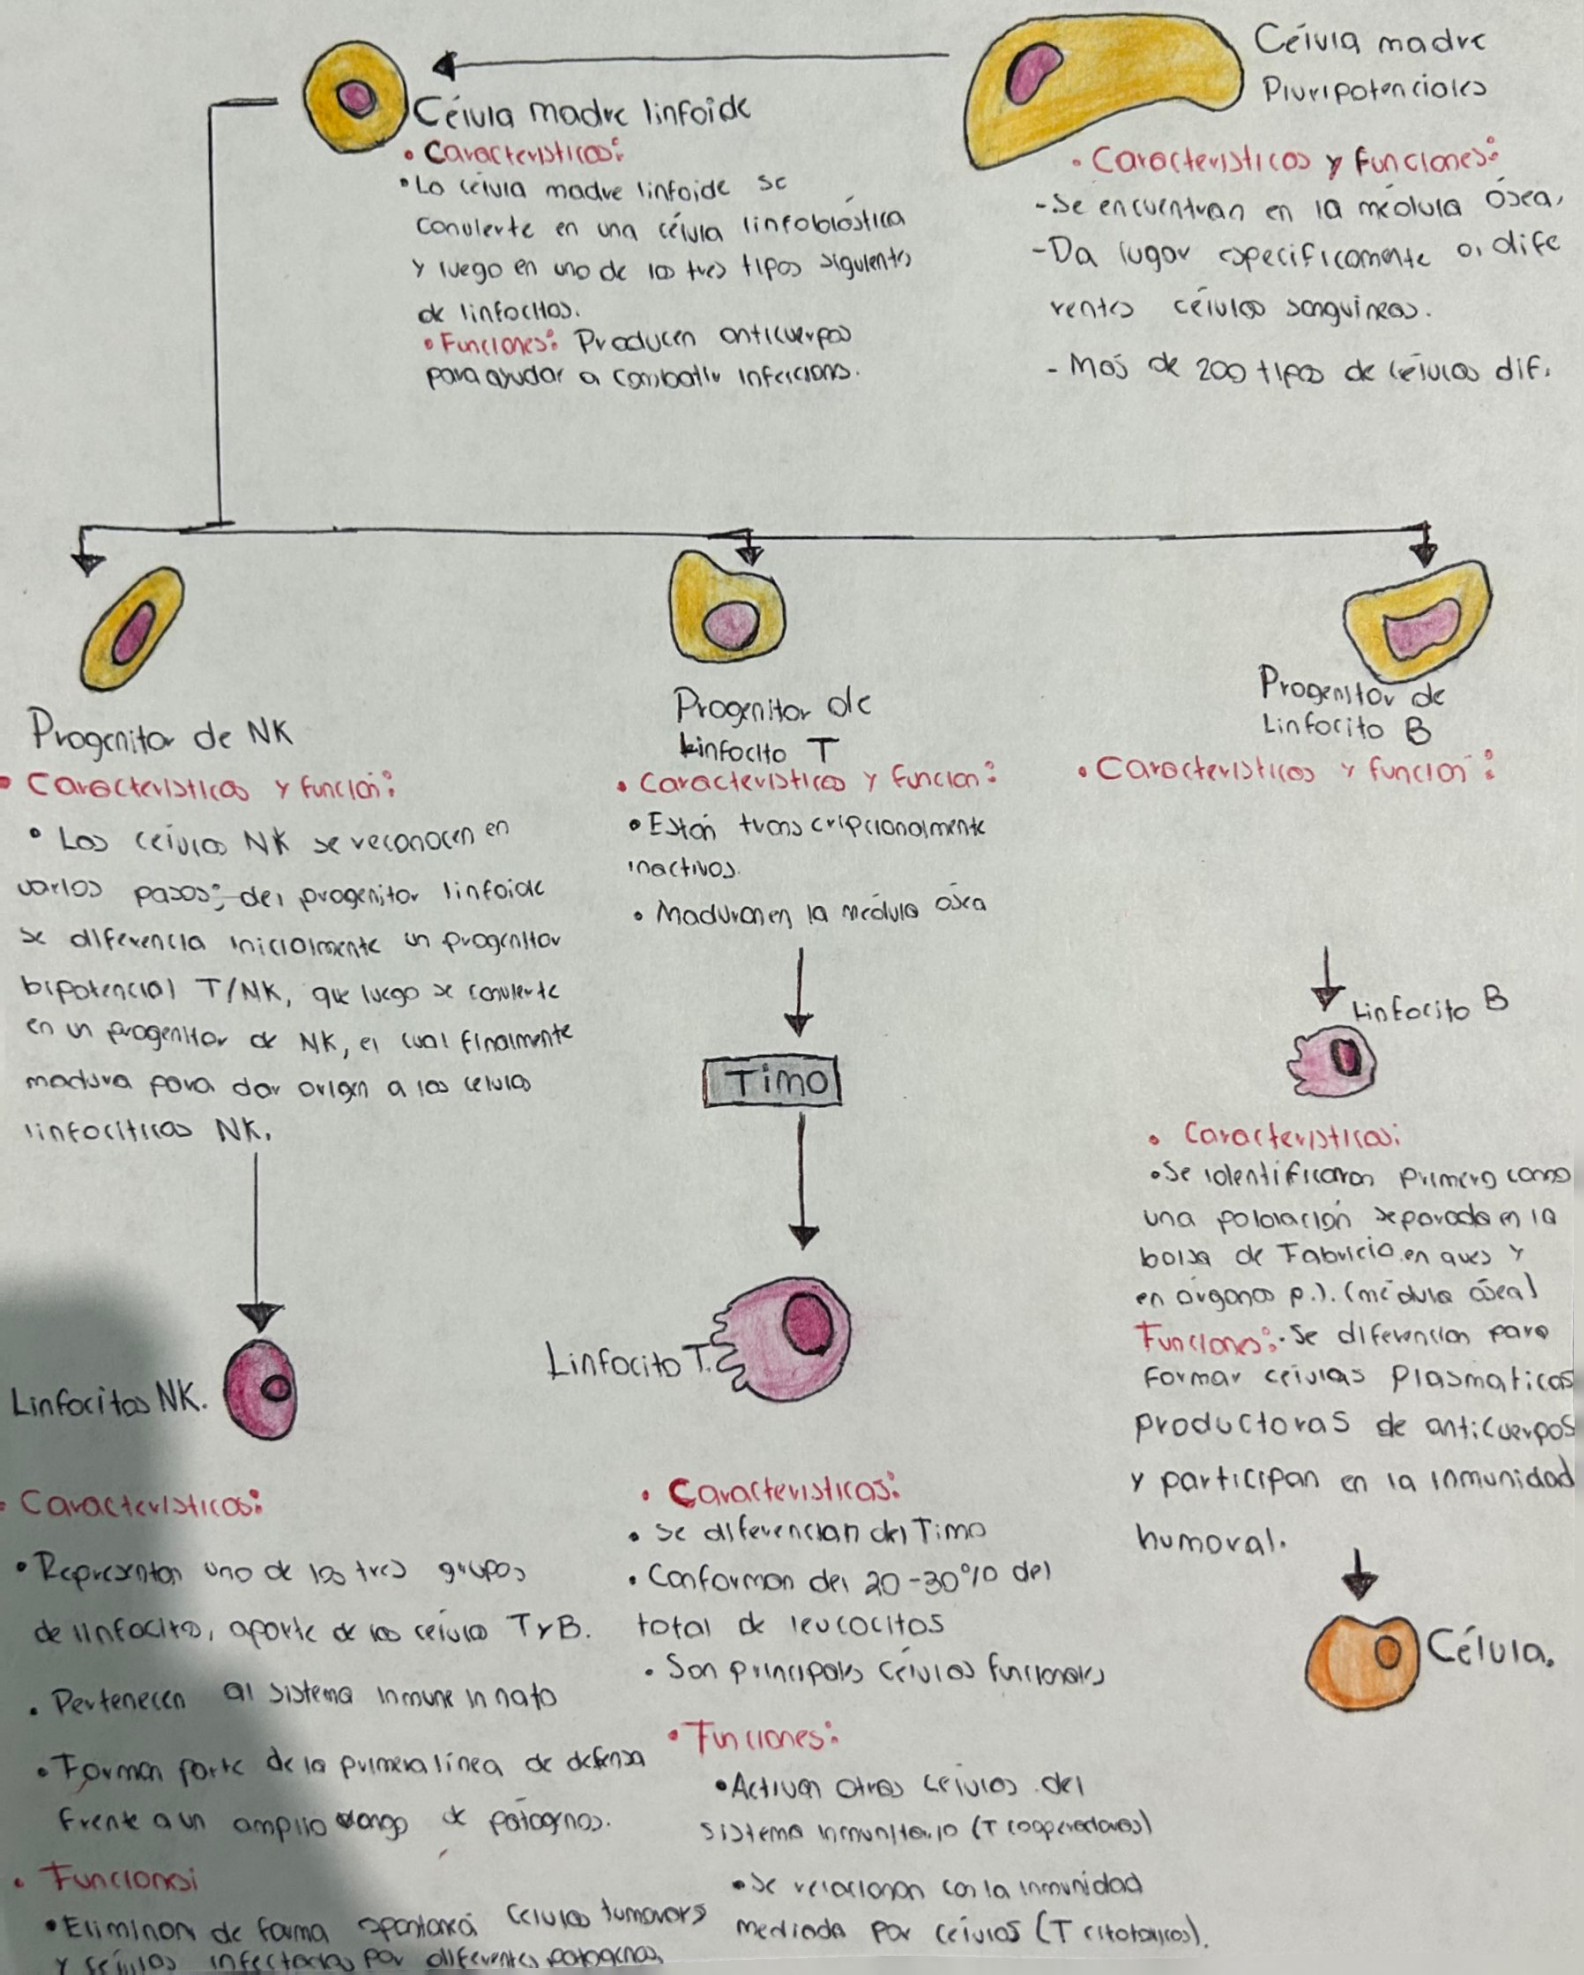 Célula madre
Pluripotenciales
• Características y funciones:
-Se encuentran en la médula ósea,
-Da lugar especificamente a, dife
rentes células sanguineas.
- Más de 200 tipos de células dif.
Célula madre linfoide
• Características:
•La célula madre linfoide se
convierte en una célula linfoblástica
y luego en uno de los tres tipos siguientes
de linfocitos.
• Funciones: Producen anticuerpos
para ayudar a combatir infeccions.
Progenitor de NK
• Características y función:
• Las células NK se reconocen en
varios pasos: del progenitor linfoide
se diferencia inicialmente un progenitor
bipotencial T/NK, que luego se convierte
en un progenitor de NK, el cual finalmente
madura para dar origen a las células
linfocíticas NK.
Linfocitos NK.
• Características:
• Representan uno de los tres grupos
de linfocitos, aparte de las células T y B.
• Pertenecen al sistema inmune innato
• Forman parte de la primera línea de defensa
frente a un amplio rango de patógnos.
• Funciones:
• Eliminan de forma espontanea células tumorors
y células infectadas por diferentes patogenos
Progenitor de
Linfocito T
• Características y función:
• Están transcripcionalmente
inactivos.
• Maduran en la médula ósea
Timo
Linfocito T.
• Características:
• se diferencian del Timo
• Conforman del 20-30% del
total de leucocitos
• Son principales células funcionales
• Funciones:
• Activan otras células del
sistema inmunitario (T cooperadores)
• Se relacionan con la inmunidad
mediada por células (T citotóxicos).
Progenitor de
Linfocito B
• Características y función:
Linfocito B
• Características:
•Se identificaron primero como
una población separada en la
bolsa de Fabricio en aves y
en órganos p.). (médula ósea)
Funciones: • Se diferencian para
formar células Plasmaticas
productoras de anticuerpos
y participan en la inmunidad
humoral.
Célula.